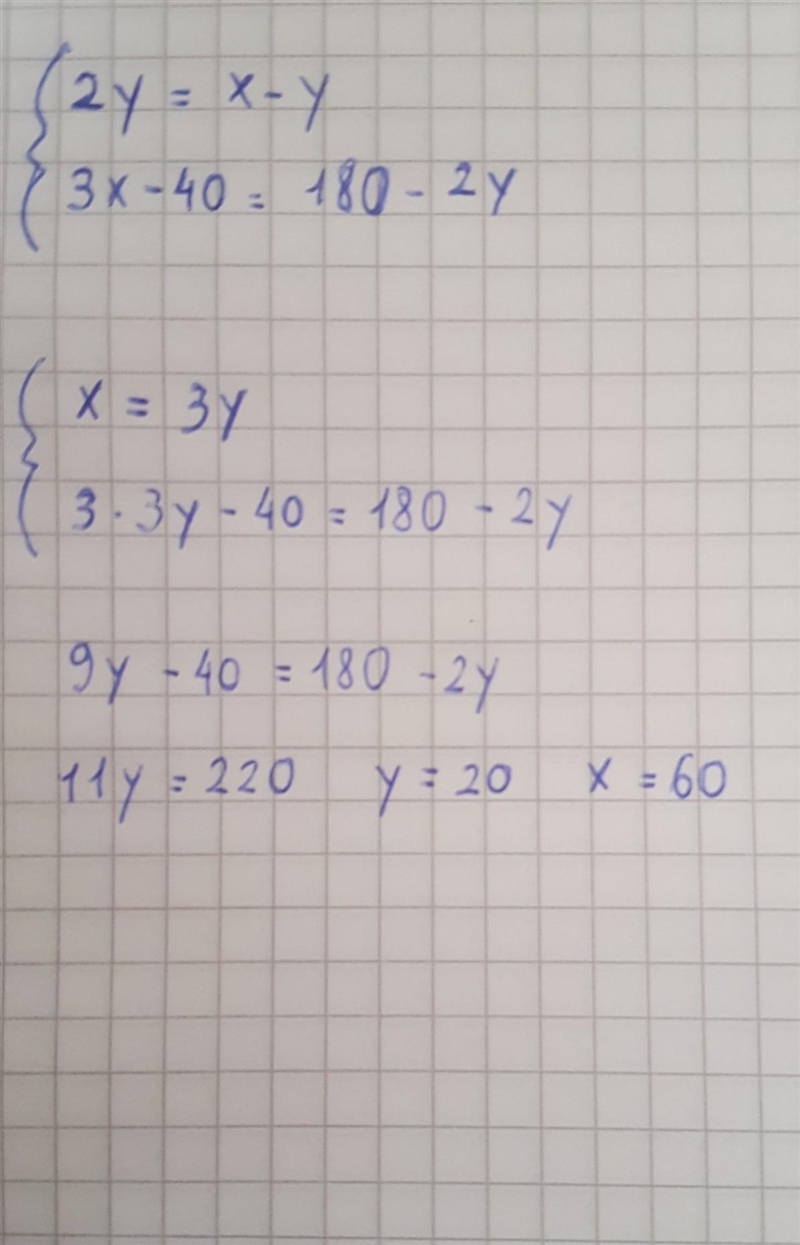 2y = x - y
3x - 40 = 180 - 2y
x = 3y
3 · 3y - 40 = 180 - 2y
9y - 40 = 180 - 2y
11y = 220 y = 20 x = 60